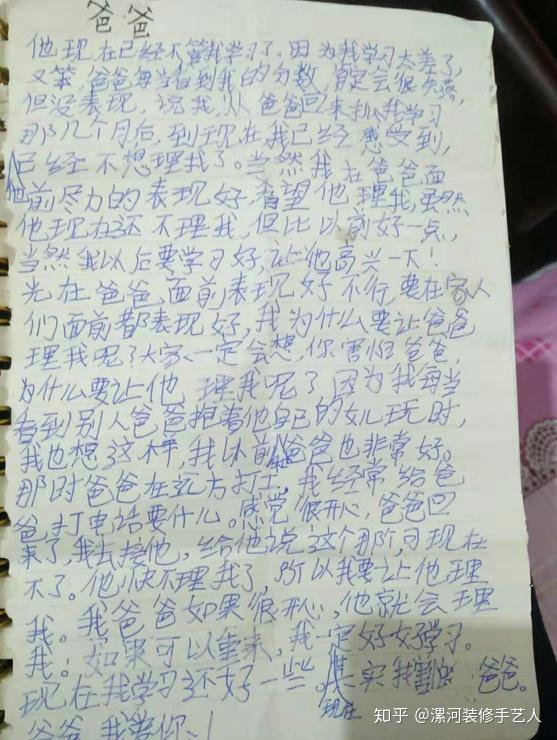 爸爸
他现在已经不管我学习了,因为我学习太差了,
又笨,爸爸每当看到我的分数,肯定会很失落,
但没表现,说我,从爸爸回来抓我学习
那几个月后,到现在我已经感受到,
他已经不想理我了。当然我在爸爸面
前尽力的表现好,希望他理我,虽然
他现在还不理我,但比以前好一点,
当然我以后要学习好,让他高兴一下!
光在爸爸面前表现好不行,要在家人
们面前都表现好,我为什么要让爸爸
理我呢?大家一定会想,你害怕爸爸,
为什么要让他理我呢?因为我每当
看到别人爸爸抱着他自己的女儿玩时,
我也想这样,我以前和爸爸也非常好。
那时爸爸在远方打工,我经常给爸
爸打电话要什么。感觉很开心,爸爸回
来了,我去接他,给他说这个那个,可现在
不了。他快不理我了,所以我要让他理
我。我爸爸如果很开心,他就会理
我!如果可以重来,我一定好好学习。
现在我学习还好一些。其实我现在害怕爸爸。
爸爸,我爱你!
知乎 @漯河装修手艺人